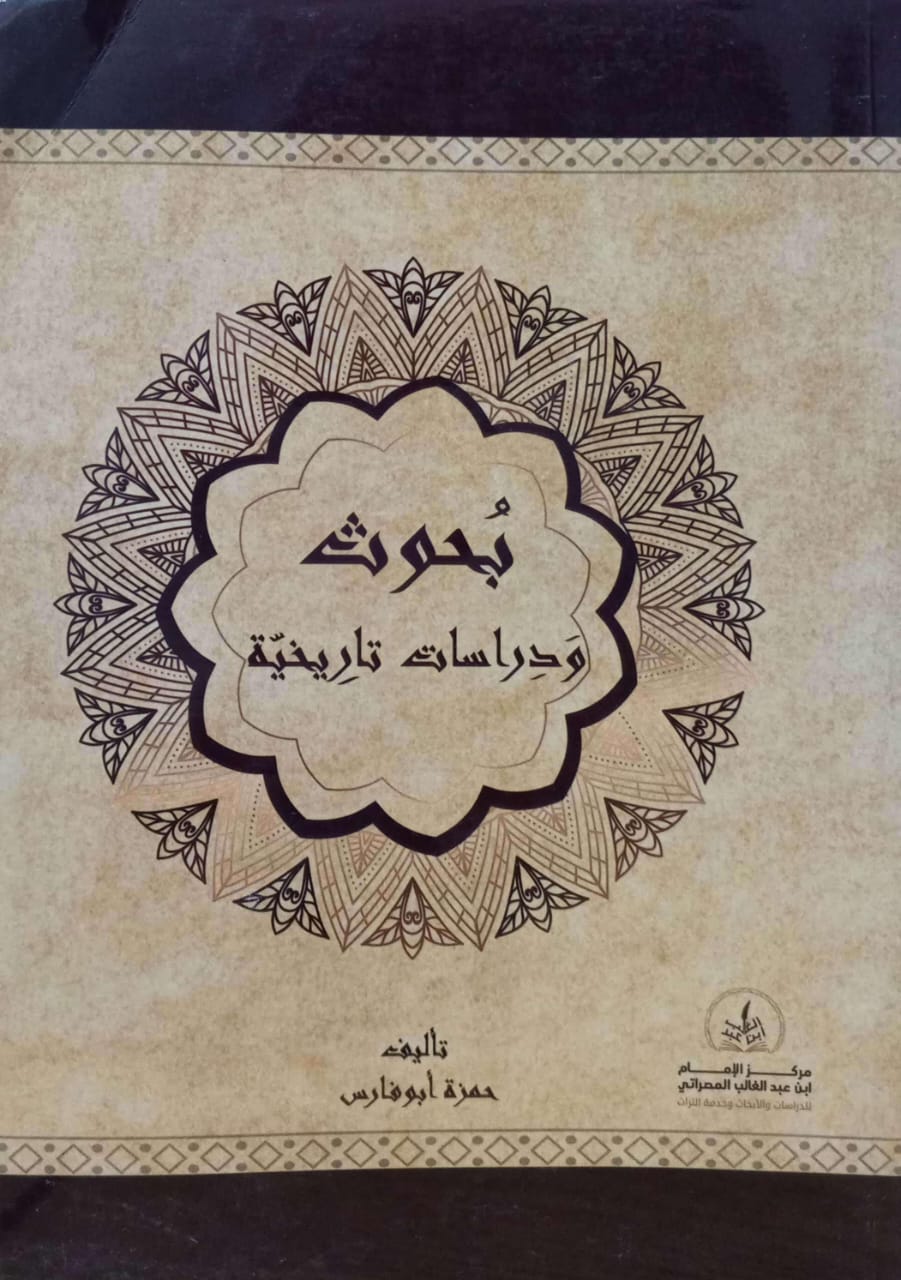 بُحوث
وَدِراسات تارِيخيّة
تأليف
حمزة أبوفارس
مركز الإمام
ابن عبد الغالب المصراتي
للدراسات والأبحاث وخدمة التراث